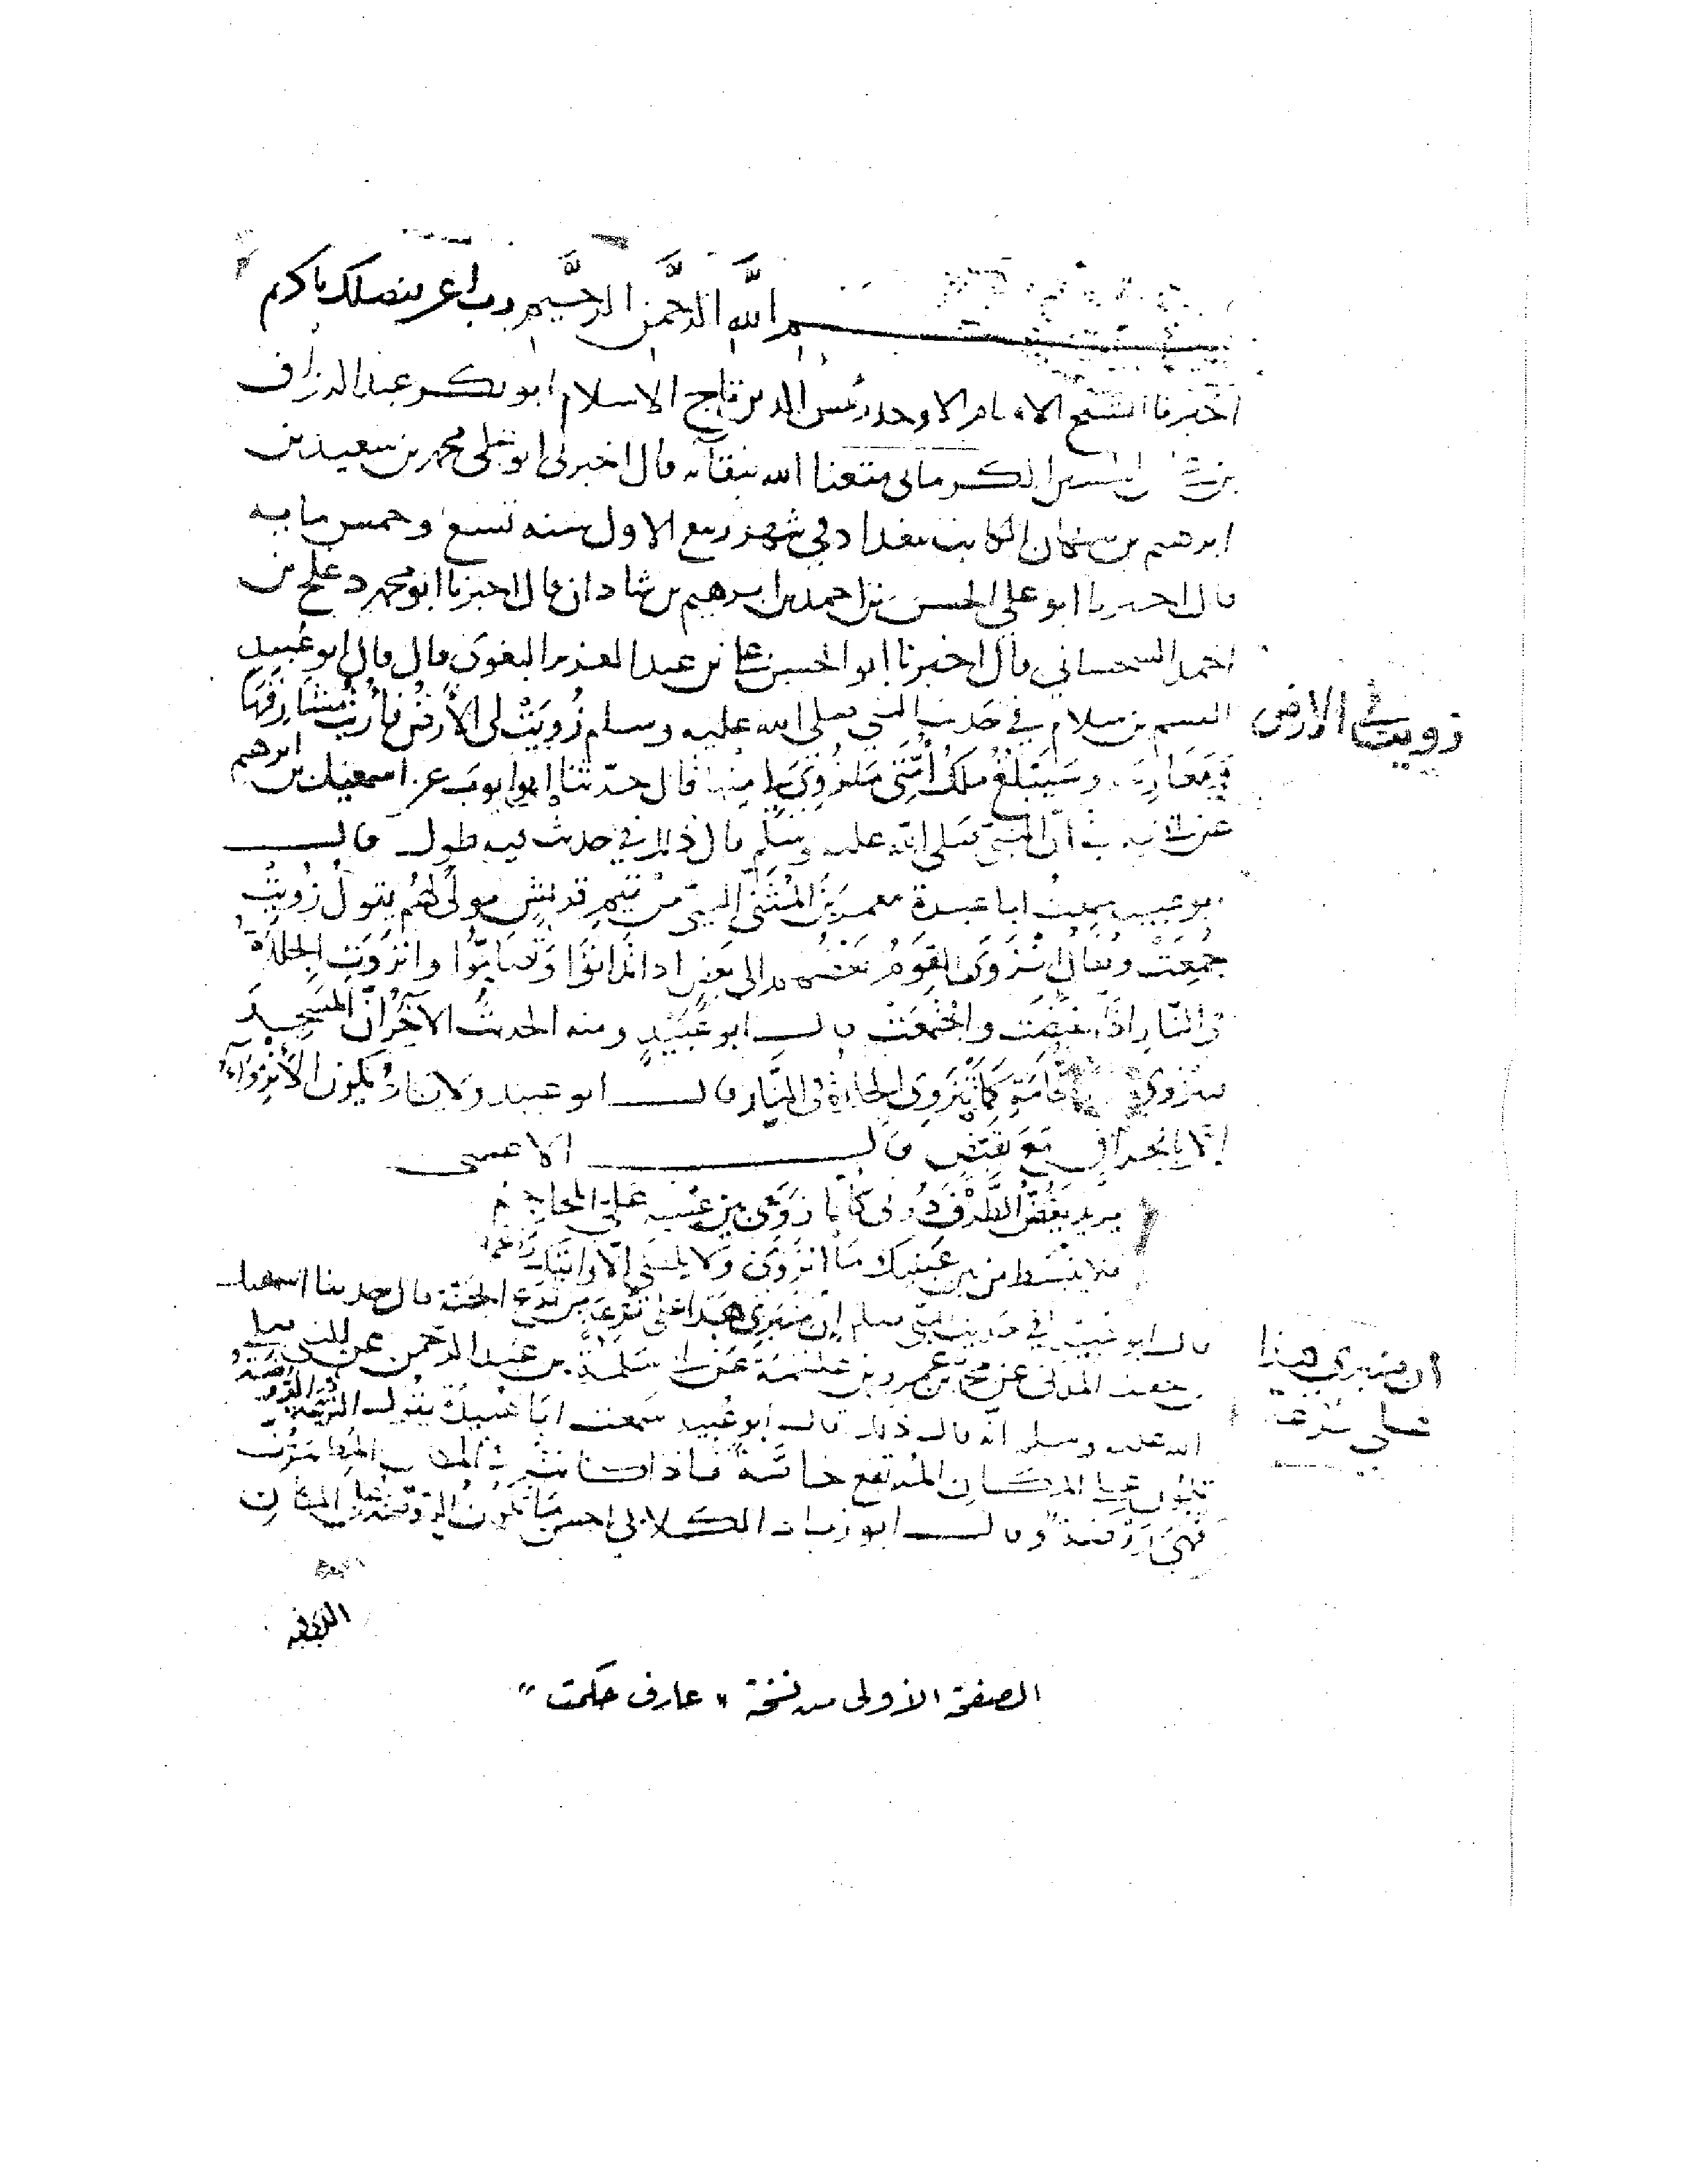 بسم الله الرحمن الرحيم رب اعن بفضلك يا كريم
اخبرنا الشيخ الامام الاوحد رئيس الدين تاج الاسلام ابو بكر عبد الرزاق
بن الكرماني متعنا الله ببقائه قال اخبرني ابو علي محمد بن سعيد بن
ابرهيم بن نبهان الكاتب ببغداد في شهر ربيع الاول سنه تسع وخمس مايه
قال اخبرنا ابو علي الحسن بن احمد بن ابرهيم بن شاذان قال اخبرنا ابو محمد دعلج بن
احمد السجستاني قال اخبرنا ابو الحسن علي بن عبد العزيز البغوي قال قال ابو عُبيد
القسم بن سلام في حَديث النبي صلى الله عليه وسلم زُوِيَتْ لي الأرضُ فأُريتُ مشارقَها
ومَغاربَها وسَيبْلغُ ملكُ أُمَّتي مَا زُوِيَ لي منها قال حدّثنا ابو ايوب عن اسمعيل بن ابرهيم
عن ان النبي صلى الله عليه وسلم قال ذلك في حديث فيه طول قال
ابو عبيد سمعتُ ابا عبيدة معمر بن المُثَنى التيمي من تيم قريشٍ مولًى لهم يقول زُويتْ
جُمِعَتْ ويقال انْزَوَى القومُ بعضُهم الى بعضٍ اذا تدانَوْا وتضامّوا وانزَوَتِ الجلدَةُ
في النّار اذا انقبضَت واجْتمعَتْ قال ابو عُبيدٍ ومنه الحديثُ الآخر انّ المسجِدَ
لينزوي من النخامَةِ كما تنزوي الجلدةُ في النّار قال ابو عبيد ولا يكادُ يكون الانْزِوَاءُ
إلا بانحرافٍ مَعَ تقبّضٍ قال الاعشى
يزيد يَغُضُّ الطَّرْفَ دُوني كأنّما زَوَى بين عينيه عليّ المحاجمُ
فلا ينبسط من بين عينيك ما انزوَى ولا يلقني الّا وانفك راغمُ
قال ابو عبيد في حديث النبي صلى إن منبري هذا على تُرعَة من تُرَعِ الجنّة قال حدثنا اسمعيل
بن جعفر المدني عن محمّد بن عمرو بن علقمة عن ابي سَلمة بن عبد الرحمن عن النبي صلى
الله عليه وسلم انه قال ذلك قال ابو عُبيد سمعت ابا عُبيدة يقول التُرعة الروضة
تكون على المكان المُرتفع خاصّة فاذا كانت في المكان المُطمئن
فهي روضة وقال ابو زياد الكلابي احسن ما تكون الروضة على المكان
زويت لي الارض
ان منبري هذا
على ترعة
الصفحة الأولى من نسخة "عارف حكمت"